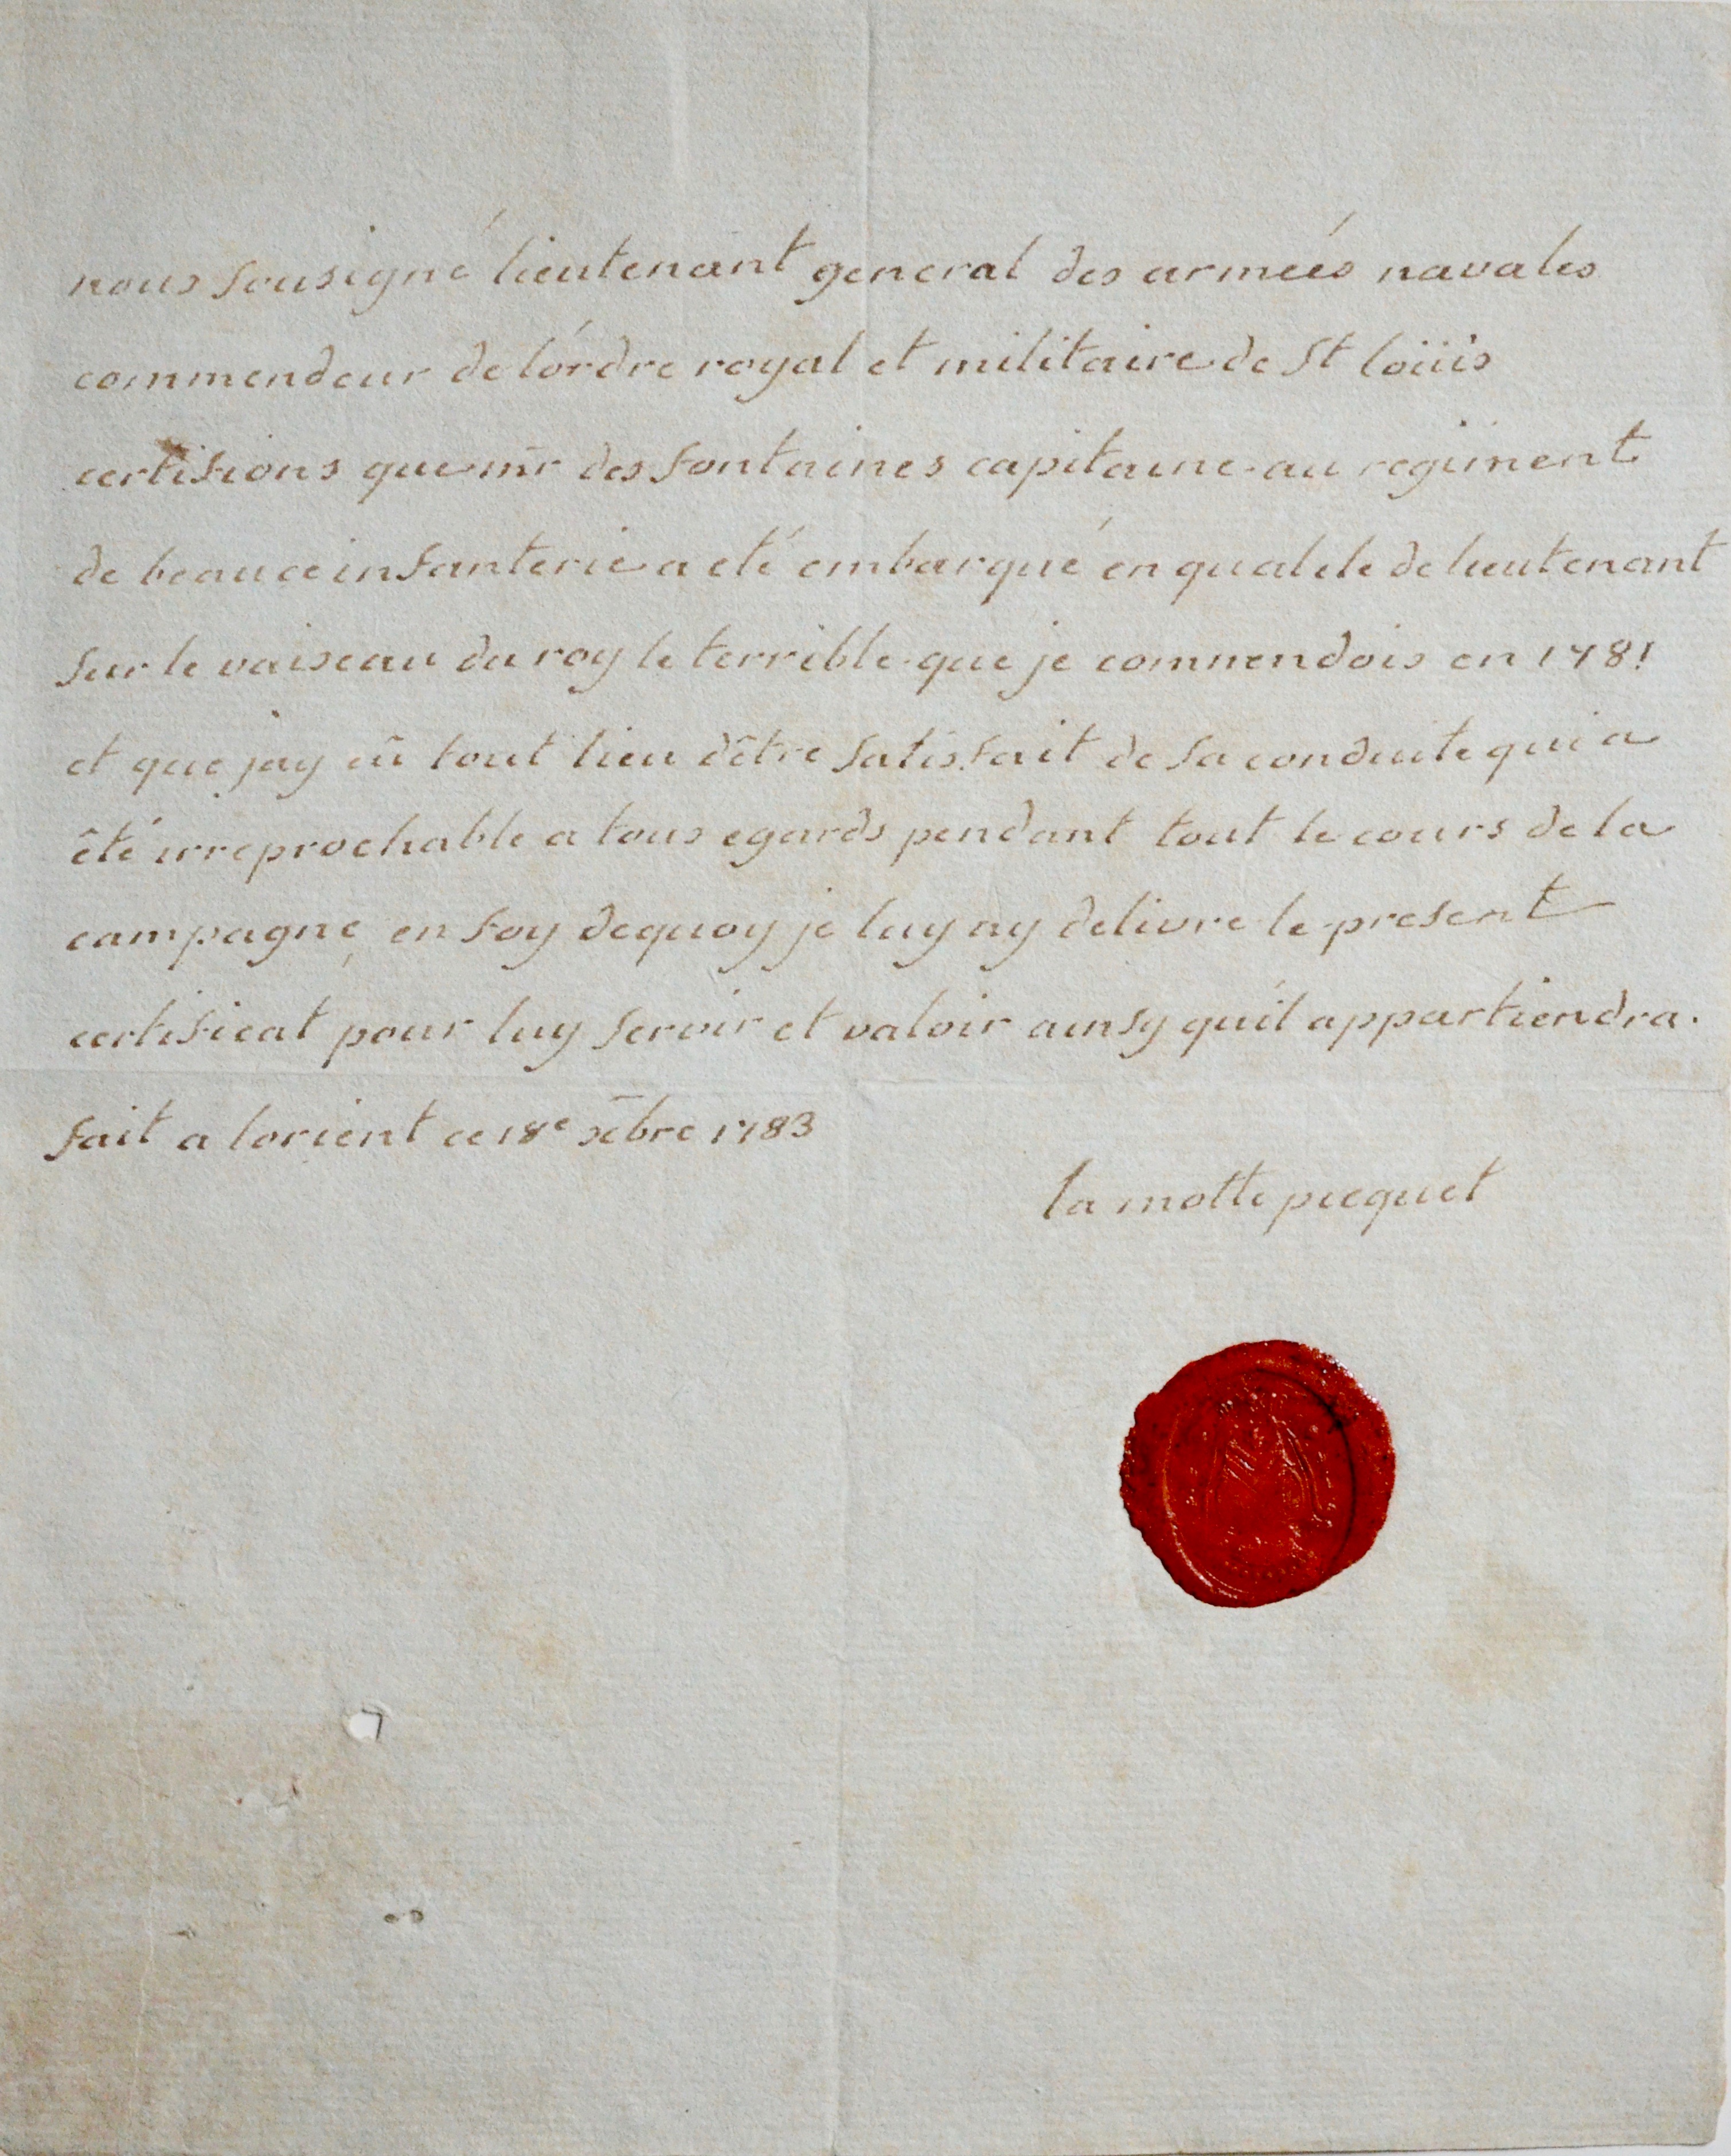 nous sousigné lieutenant general des armeés navales
commendeur de l'ordre royal et militaire de St loüis
certifions que mr des fontaines capitaine au regiment
de beauce infanterie a eté embarqué en qualite de lieutenant
sur le vaiseau du roy le terrible que je commendois en 1781
et que jay eû tout lieu d'être satisfait de sa conduite qui a
êté irreprochable a tous egards pendant tout le cours de la
campagne, en foy dequoy je luy ay delivre le present
certificat pour luy servir et valoir ainsy qu'il appartiendra.
fait a lorient ce 18e xbre 1783
la motte picquet